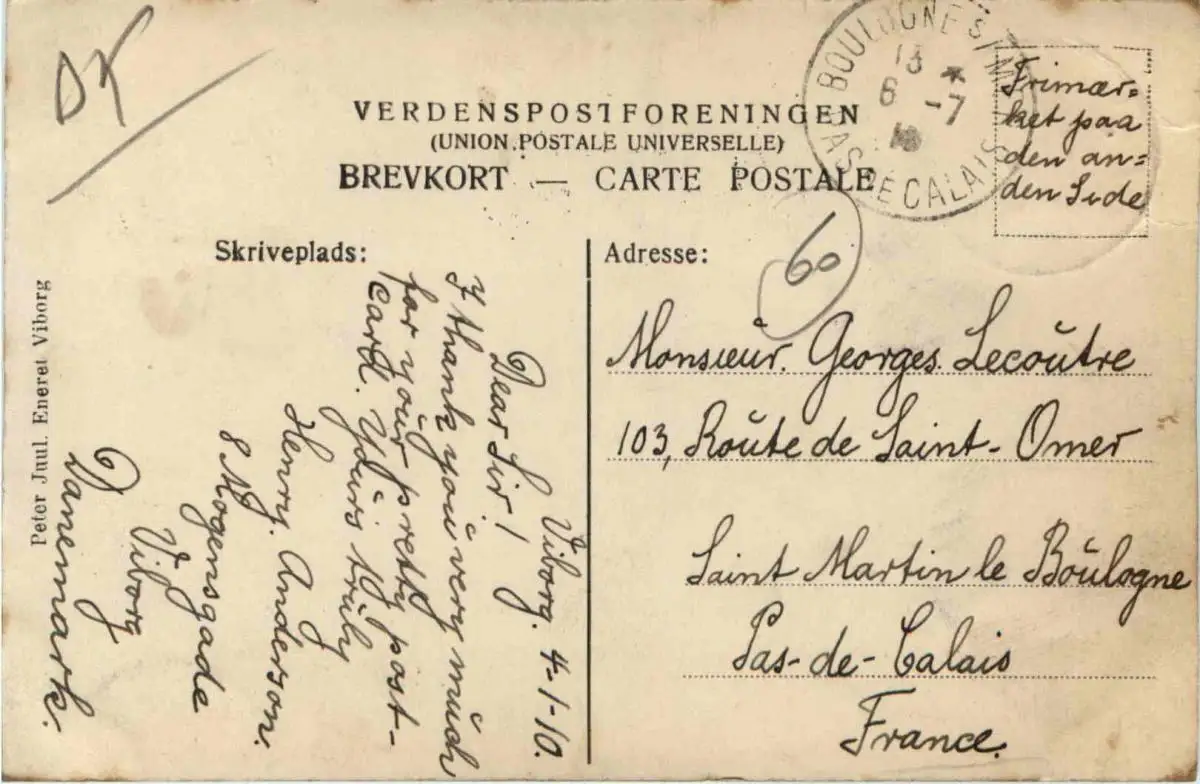 DK
VERDENSPOSTFORENINGEN
(UNION POSTALE UNIVERSELLE)
BREVKORT — CARTE POSTALE
BOULOGNE S/M
PAS DE CALAIS
13
6 -7
10
Frimær=
ket paa
den an=
den Side
Skriveplads:
Adresse:
60
Viborg. 4-1-10.
Dear Sir!
I thank you very much
for your pretty post-
card. Yours truly
Henry. Anderson.
8 Mogensgade
Viborg
Danemark.
Monsieur. Georges. Lecoûtre
103, Roûte de Saint-Omer
Saint Martin le Boûlogne
Pas-de-Calais
France.
Peter Juul. Eneret Viborg